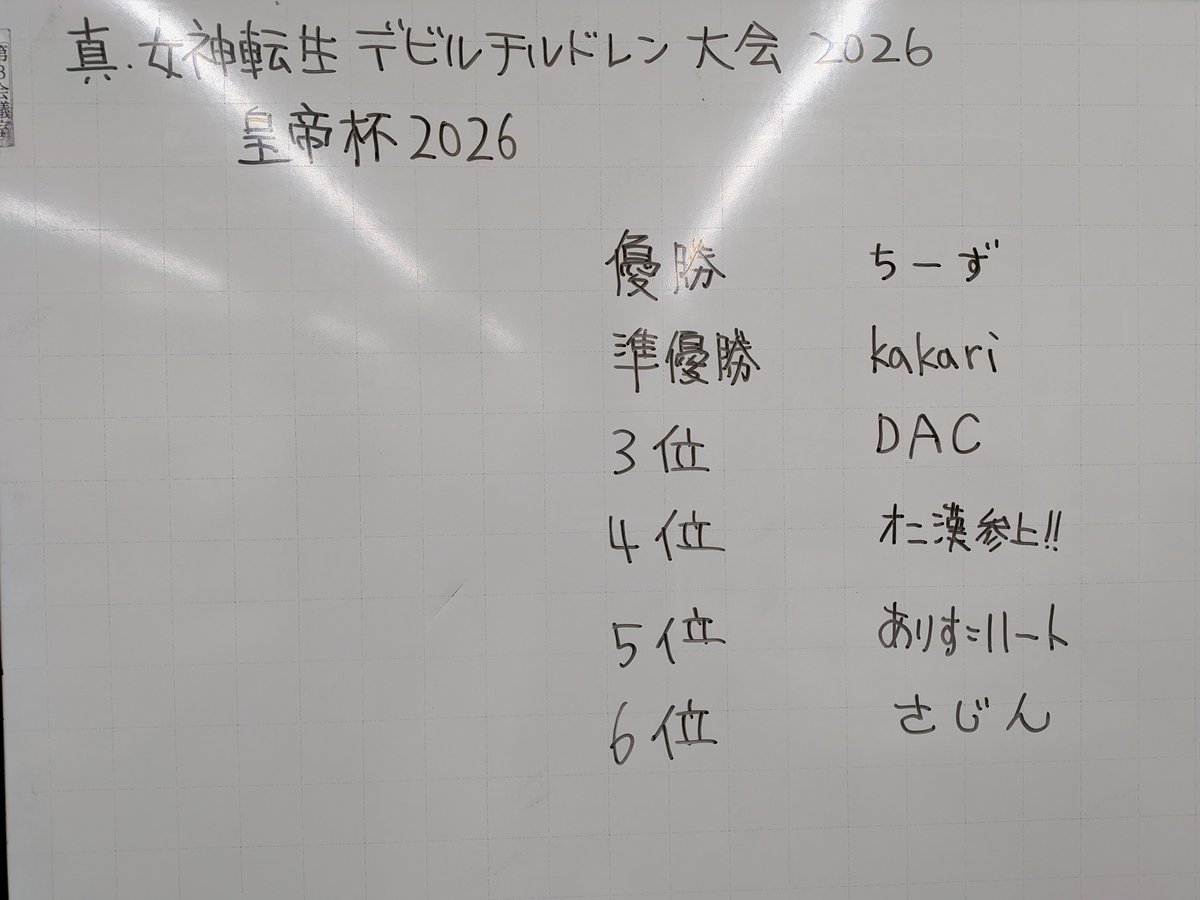 第3会議室
真・女神転生 デビルチルドレン 大会 2026
皇帝杯2026
優勝 ちーず
準優勝 kakari
3位 DAC
4位 オニ漢参上!!
5位 ありす=ハート
6位 さじん